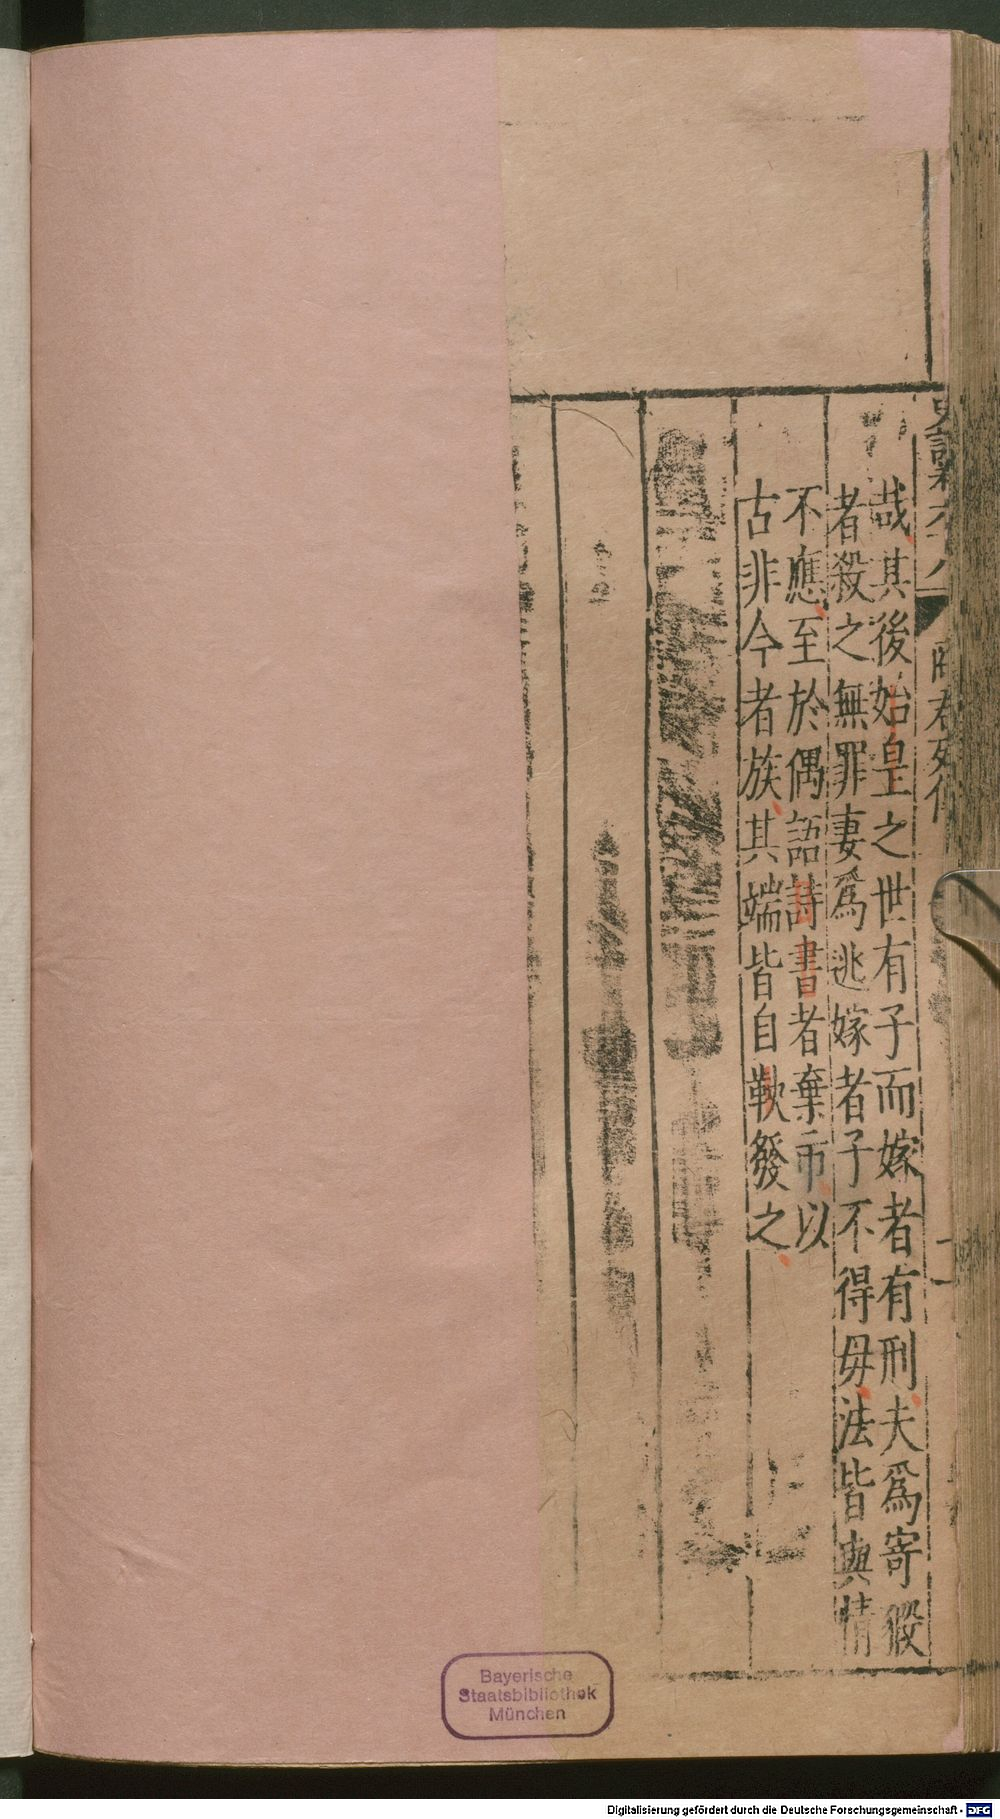 哉其後始皇之世有子而嫁者有刑夫爲寄豭
者殺之無罪妻爲逃嫁者子不得毋法皆與情
不應至於偶語詩書者棄市以
古非今者族其端皆自鞅發之
Bayerische
Staatsbibliothek
München
Digitalisierung gefördert durch die Deutsche Forschungsgemeinschaft - DFG